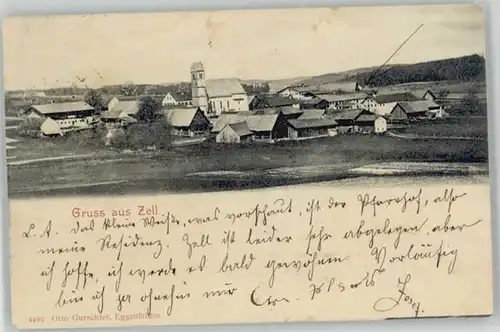 Gruss aus Zell
L. A. Das kleine Weiße, was vorschaut, ist der Pfarrhof, also
meine Residenz. Zell ist leider sehr abgelegen, aber
ich hoffe, ich werde es bald gewohnen. Vorläufig
bin ich ja ohnehin nur
4495 Otto Gurschler, Eggenfelden